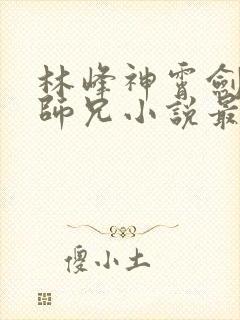 林峰神霄劍
師兄小說最
傻小土